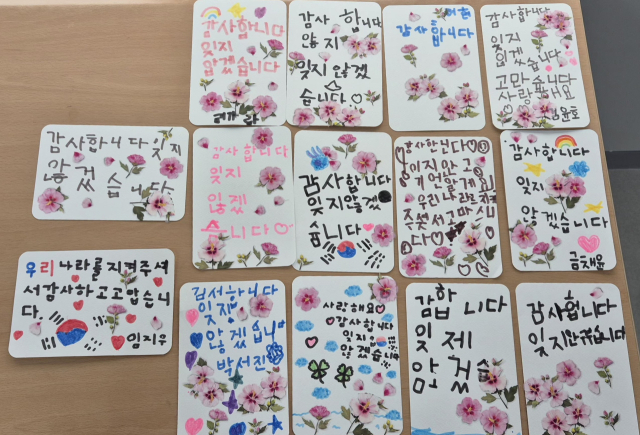 감사합니다
잊지
않겠습니다
감사 합니다
않 지
잊지 않겠
습니다
감사합니다
감사합니다
잊지
않겠습니다
고맙습니다
사랑해요
김윤호
감사합니다 잊지
않겠
습니다
감사합니다
잊지
않겠
습니다
감사합니다
잊지않겠
습니다
감사합니다
잊지 안고
기억할게요
우리 나라를 지켜
주셔서 고맙습니
다
감사합니다
잊지
않겠습니다
금채윤
우리 나라를 지켜주셔
서감사하고고맙습니
다.
임지우
감서합니다
잊지
않겠습니
박서진
사랑해요
감사합니다
잊지
않겠습니다
감합 니다
잊 제
않겠습
감사합니다
잊지않겠습니다